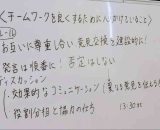 くチームワークを良くするために心がけていること〉
お互いに尊重し合い 意見交換を建設的に!
発言は順番に! 否定はしない
ディスカッション
効果的なコミュニケーション
異なる意見を
役割分担と協力の仕方
13:30